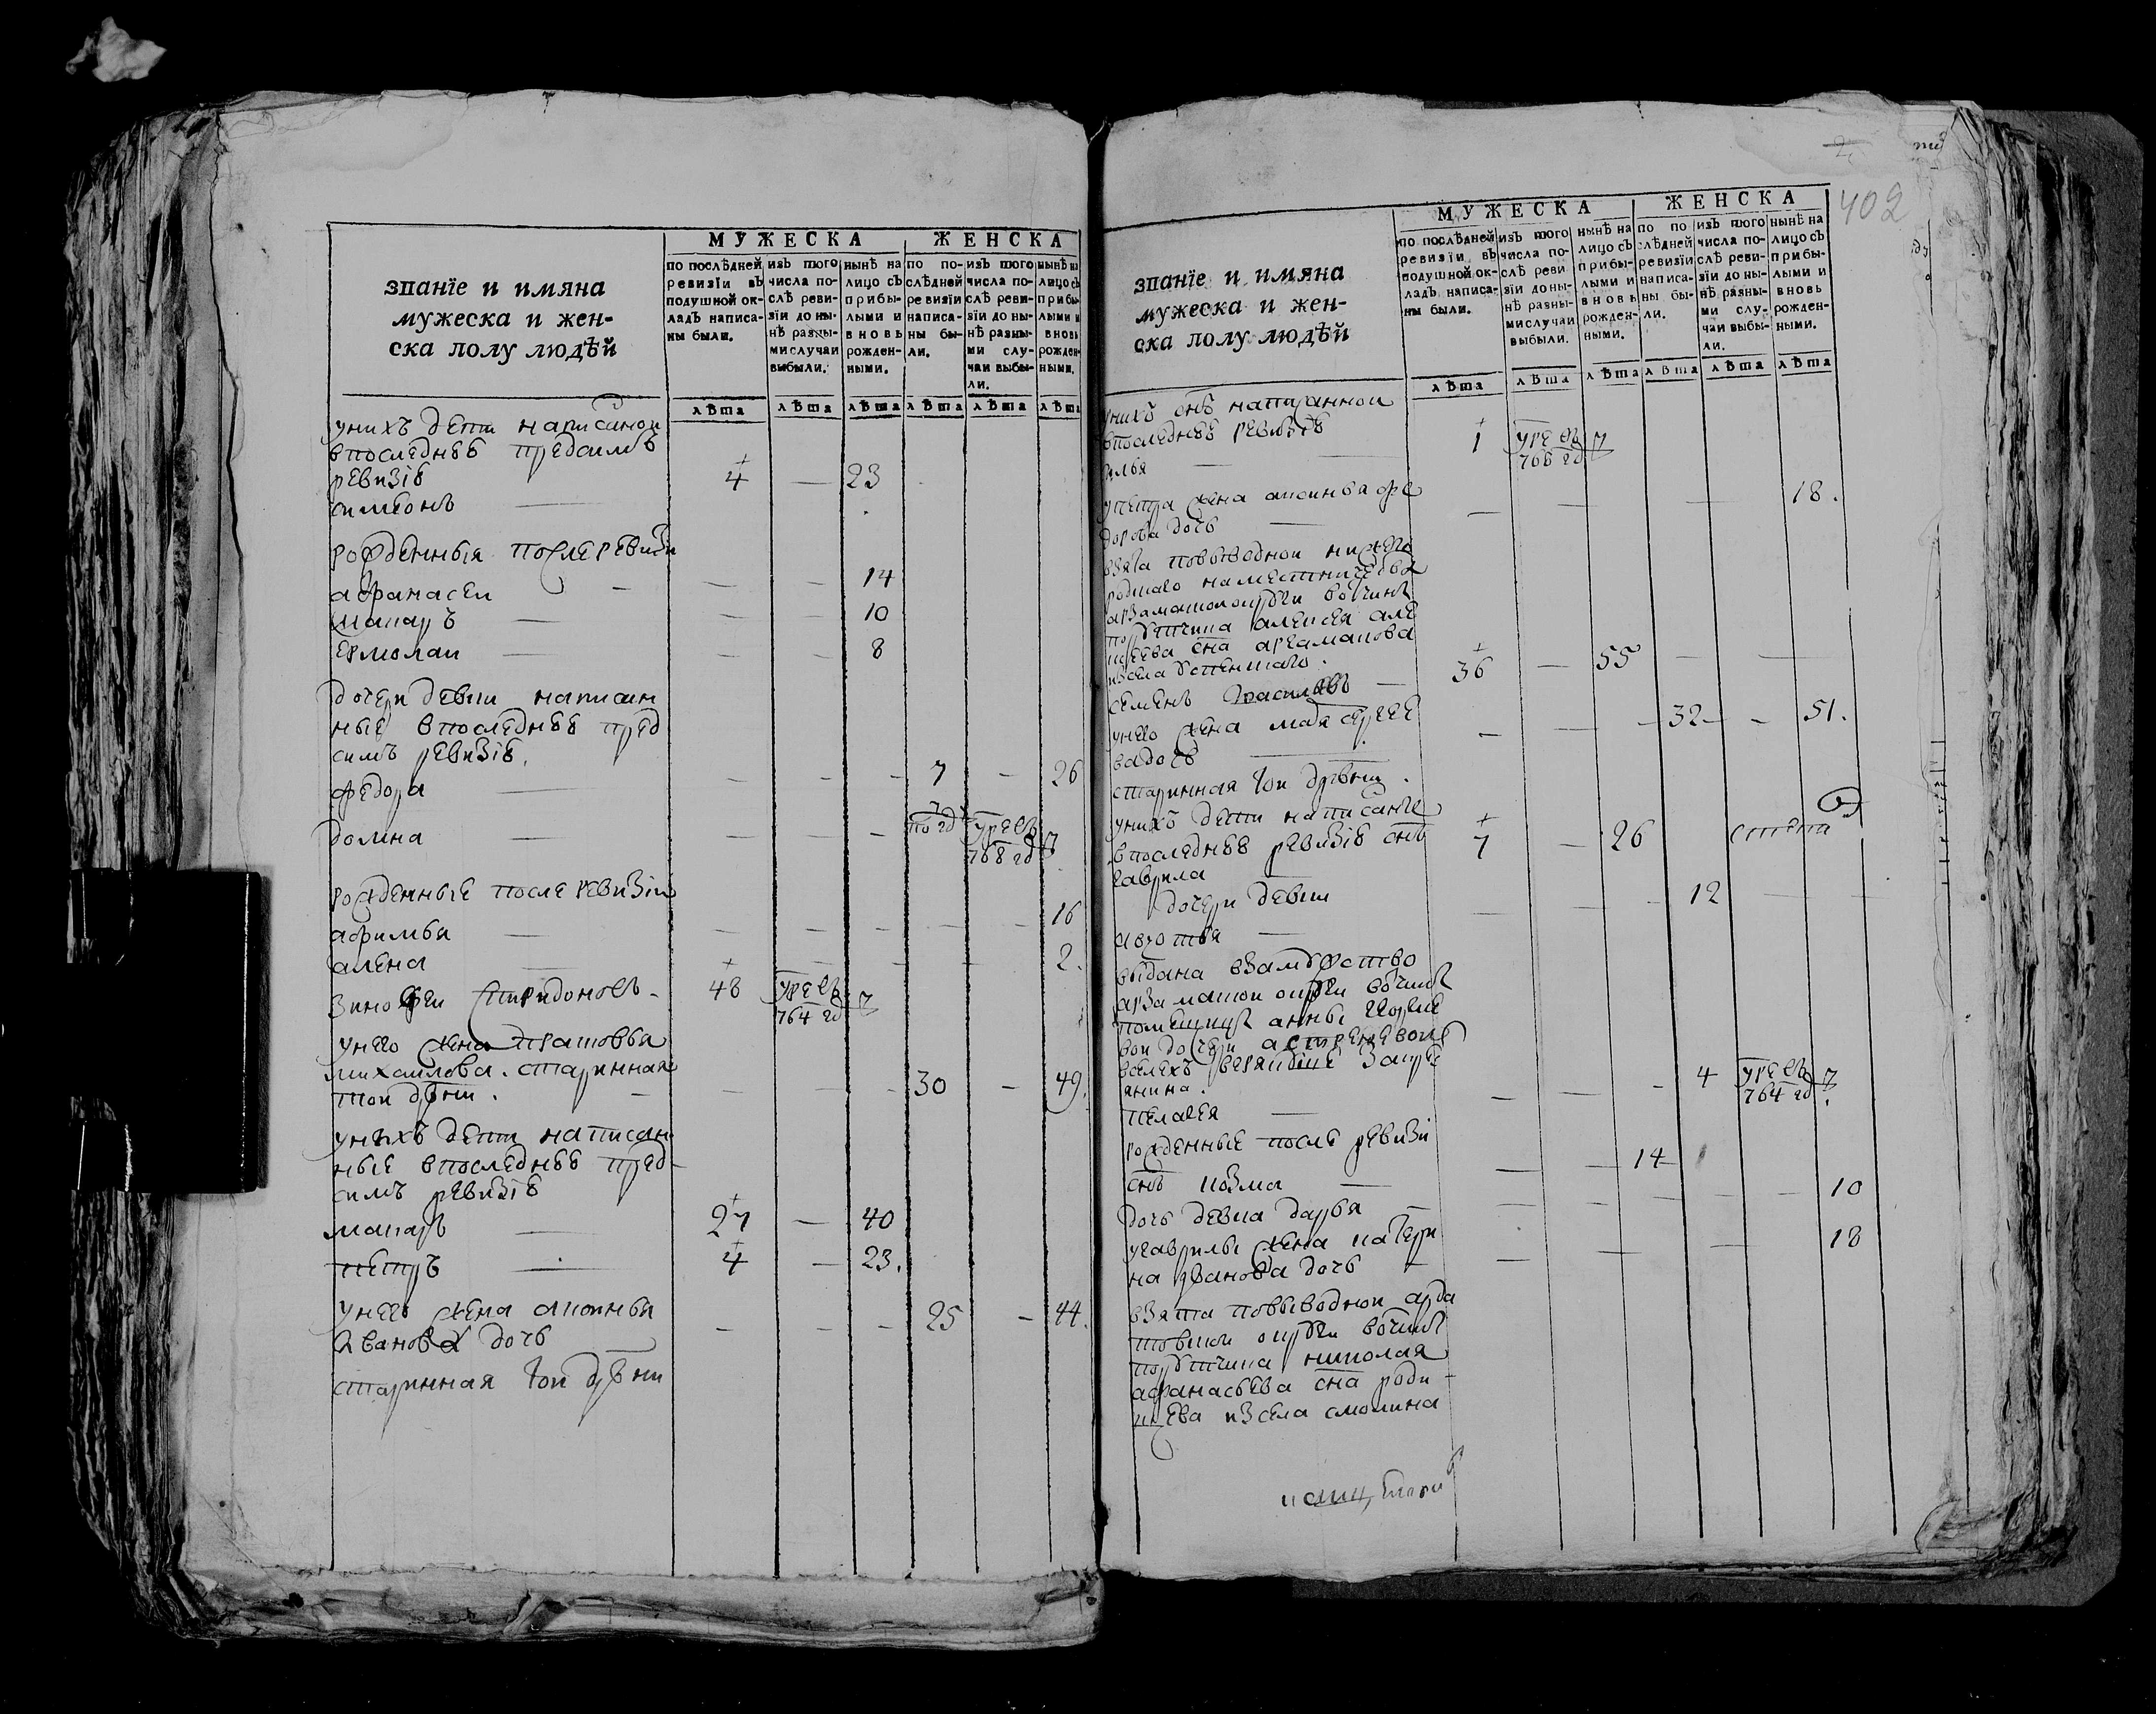 МУЖЕСКА
ЖЕНСКА
званїе и имяна
мужеска и жен-
ска полу людѣй
по послѣдней
ревизїи въ
подушной ок-
ладъ написа-
ны были.
изъ того
числа по-
слѣ реви-
зїи до ны-
нѣ разны-
ми случаи
выбыли.
нынѣ на
лицо съ
прибы-
лыми и
вновь
рожден-
ными.
по по-
слѣдней
ревизїи
написа-
ны бы-
ли.
изъ того
числа по-
слѣ реви-
зїи до ны-
нѣ разны-
ми слу-
чаи выбы-
ли.
нынѣ на
лицо съ
прибы-
лыми и
вновь
рожден-
ными.
лѣта лѣта лѣта лѣта лѣта лѣта
унихъ дети написаной
впоследнѣѣ предсимъ
ревизіѣ
симеонъ — 4 — 23
рожденныя послеревизи
афанасеи — — — 14
макаръ — — — 10
ермолаи — — — 8
дочери девки написан
ные впоследнѣѣ пред
симъ ревизіѣ.
федора — — — — 7 — 26
домна — — — — 7
768 гд
рожденные после ревизіи
афимья — — — — — — 16
алена — — — — — 2.
зиновеи спиридоновъ — 48
764 гд
унего жена прасковья
михаилова. старинная
тои дрвни. — — — — 30 — 49.
унихъ дети написан
ные впоследнѣѣ пред-
симъ ревизіѣ
макаръ — 27 — 40
петръ — 4 — 23.
унего жена аксинья
Ивановa дочь — — — 25 — 44.
старинная тои дрвни
402
МУЖЕСКА
ЖЕНСКА
званїе и имяна
мужеска и жен-
ска полу людѣй
по послѣдней
ревизїи въ
подушной ок-
ладъ написа-
ны были.
изъ того
числа по-
слѣ реви-
зїи до ны-
нѣ разны-
ми случаи
выбыли.
нынѣ на
лицо съ
прибы-
лыми и
вновь
рожден-
ными.
по по-
слѣдней
ревизїи
написа-
ны бы-
ли.
изъ того
числа по-
слѣ реви-
зїи до ны-
нѣ разны-
ми слу-
чаи выбы-
ли.
нынѣ на
лицо съ
прибы-
лыми и
вновь
рожден-
ными.
лѣта лѣта лѣта лѣта лѣта лѣта
унихъ снъ написанной
впоследнѣѣ ревизіѣ
илья — — 1
766 гд
упетра жена аксинья фе
дорова дочь — — — — 18.
взята повыводнои нижего
родцкаго наместничества
арзамаской округи вотчины
порутчика алексея але
ксеева сна
изсела успенскаго.
семенъ васильевъ — 36 — 55 — —
унего жена марья сергее
ва дочь — — — 32 — — 51.
старинная тои дрвни.
унихъ дети написаные
впоследнѣѣ ревизіѣ снъ
гаврила — 7 — 26
дочери девки
авдотья — — — — — 12 — —
выдана взамужство
арзамаской округи вотчины
помещицы анны
вои дочери
анина.
пелагея — — — — 4
764 гд
рожденные после ревизи
снъ козма — — — 14
дочь девка дарья — — — — — 10
угаврилы жена катери
на иванова дочь — — — — 18
взята повыводнои арда
товской округи вотчины
порутчика николая
афанасьева сна роди-
изсела смолина